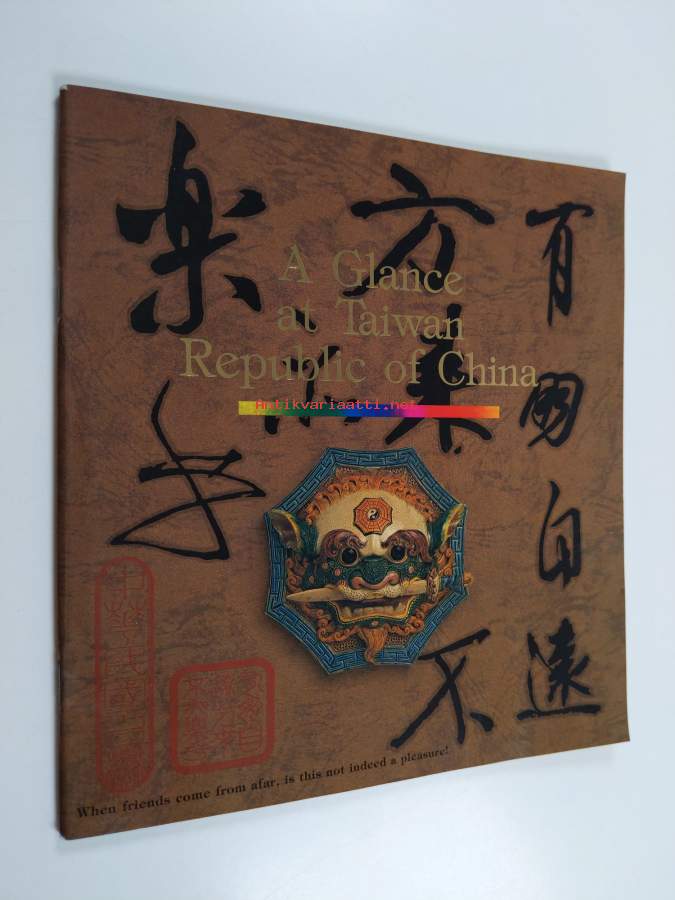 有朋自遠
方来不
亦
楽乎
A Glance
at Taiwan
Republic of China
Antikvariaatti.net
When friends come from afar, is this not indeed a pleasure!